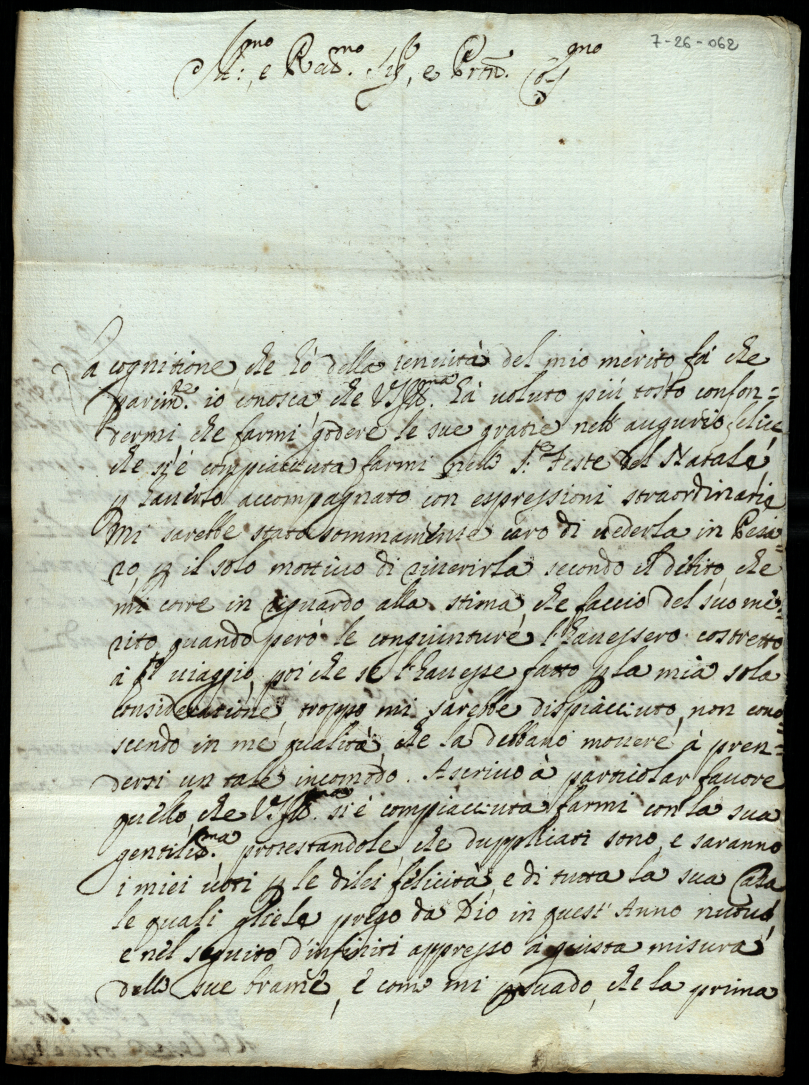 7-26-062
Ill:mo, e Rad.mo Sig.r, e Prōn. Col.mo
La cognitione che hò della tenuità del mio merito fà che
parim.te io conosca che V.S. Ill.ma hà voluto più tosto confon=
dermi che farmi godere le sue gratie nell' augurio felice
che si è compiacciuta farmi nelle S.te Feste del Natale
p hauerlo accompagnato con espressioni straordinarie
Mi sarebbe stato sommamente caro di vederla in Pesa=
ro p il solo mottiuo di riuerirla secondo il debito che
mi corre in riguardo alla stima che faccio del suo me=
rito, quando però le congiunture l'hauessero costretto
à tal viaggio, poi che se l'hauesse fatto p la mia sola
consideratione, troppo mi sarebbe dispiacciuto, non cono=
scendo in me qualità che la debbano mouere à pren=
dersi un tale incomòdo. Ascriuo à particolar fauore
quello che V.S. Ill.ma si è compiacciuta farmi con la sua
gentiliss.ma protestandole che duppliati sono, e saranno
i miei uoti p le di lei felicità, e di tutta la sua Casa
le quali gliele prego da Dio in quest' Anno nuouo,
e nel seguito d'infiniti appresso à giusta misura
delle sue brame, e come mi psuado, che la prima